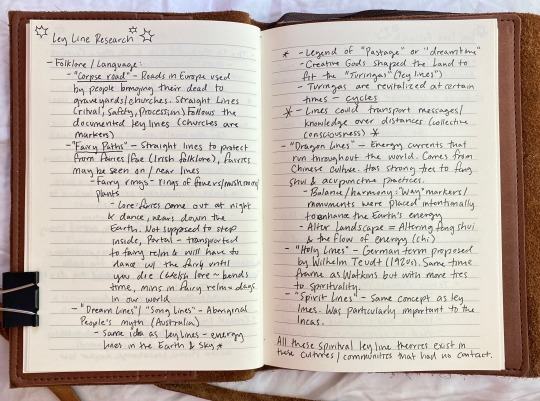 Ley Line Research
- Folklore/Language:
- "Corpse road" - Roads in Europe used
by people bringing their dead to
graveyards/churches. Straight Lines
(rival, Safety, Procession) Follows the
documented ley lines (churches are
markers)
- "Fairy Paths" - Straight lines to protect
from fairies/fae (Irish folklore), fairies
may be seen on/near lines
- Fairy rings - rings of flowers/mushrooms/
plants
- Lore: fairies come out at night
& dance, wears down the
Earth. Not supposed to step
inside, Portal - transported
to fairy relm & will have to
dance w/ the folk until
you die (Welsh lore ~ bends
time, mins in fairy relm = days
in our world
- "Dream Lines"/"Song Lines" - Aboriginal
People's myth (Australia)
- Same idea as ley lines - energy
lines in the Earth & Sky *
* - Legend of "Pastage" or "dreamtime"
- Creative Gods shaped the Land to
fit the "Turingas" ("ley lines")
- Turingas are revitalized at certain
times - cycles
* - Lines could transport messages/
knowledge over distances (collective
consciousness) *
- "Dragon Lines" - Energy currents that
run throughout the world. Comes from
Chinese culture. Has strong ties to feng
shui & acupuncture practices.
- Balance/harmony: "Way" markers/
monuments were placed intentionally
to enhance the Earth's energy
- Alter landscape = Altering feng shui
& the flow of energy (chi)
- "Holy Lines" - German term proposed
by Wilhelm Teudt (1920s). Same time
frame as Watkins but with more ties
to spirituality.
- "Spirit Lines" - Same concept as ley
lines. Was particularly important to the
Incas.
All these spiritual ley line theories exist in
these cultures/communities that had no contact.